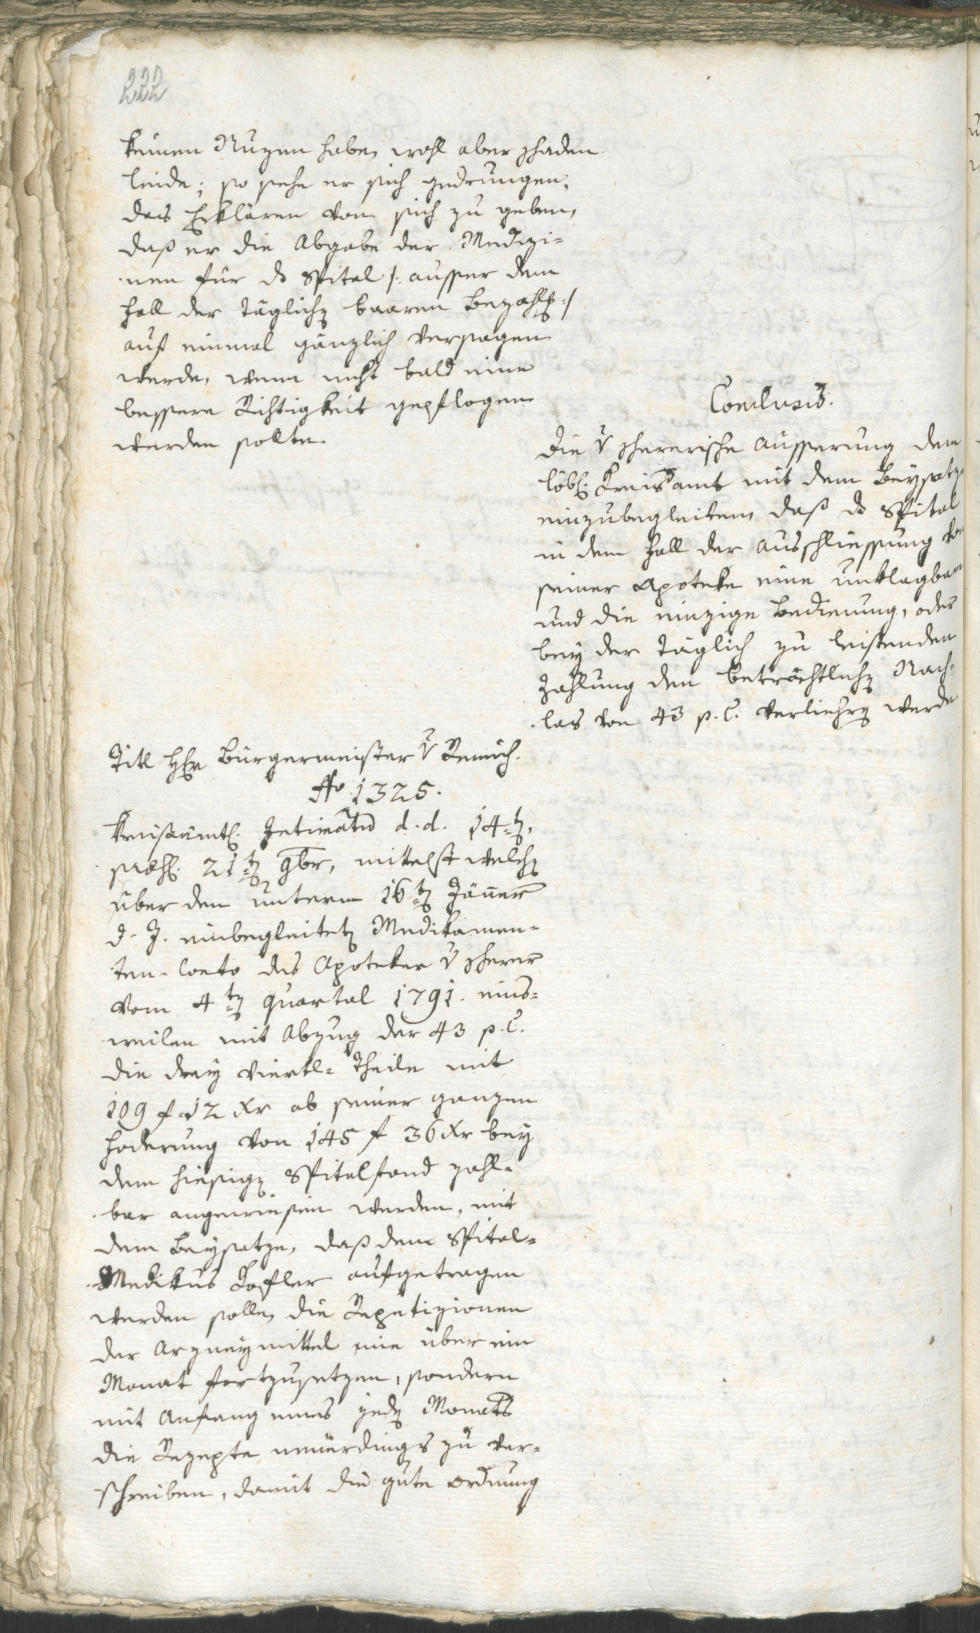 222
keinen Nuzen habe, wohl aber schaden
leide; so sehe er sich gedrungen,
das Erklären von sich zu geben,
daß er die Abgabe der Medizi=
nen für ds Spital /: ausser dem
Fall der täglichen baaren Bezahlg :/
auf einmal gänzlich versagen
werde, wenn nicht bald eine
bessere Richtigkeit gepflogen
werden sollte.
Conclusum.
Die v schererische Äusserung dem
löbl: Kreisamt mit dem Beysatze
einzubegleiten, daß ds Spital
in dem Fall der Ausschliessung
seiner Apoteke eine unklagbare
und die einzige Bedienung, oder
bey der täglich zu leistenden
Zahlung den beträchtlichen Nach=
las von 43 p. C. verliehren werde
Titl Hr Bürgermeister v Remich.
No 1325.
Kreisämtl. Intimatum d. d. 14ten,
präs. 21ten 9br, mittelst welchen
über den unterm 16ten Jäner
d. J. einbegleiteten Medikamen=
ten-Conto des Apoteker v scherer
vom 4ten Quartal 1791. eins=
weilen mit Abzug der 43 p. C.
die drey Viertl=Theile mit
109 f 12 Xr ab seiner ganzen
Foderung von 145 f 36 Xr bey
dem hiesigen Spitalfond zahl=
bar angewiesen werden, mit
dem Beysatze, daß dem Spital=
Medikus Kofler aufgetragen
werden solle, die Repetizionen
der Arzneymittel nie über ein
Monat fortzusetzen, sondern
mit Anfang eines jeden Monats
die Rezepte neuerdings zu ver=
schreiben, damit die gute Ordnung